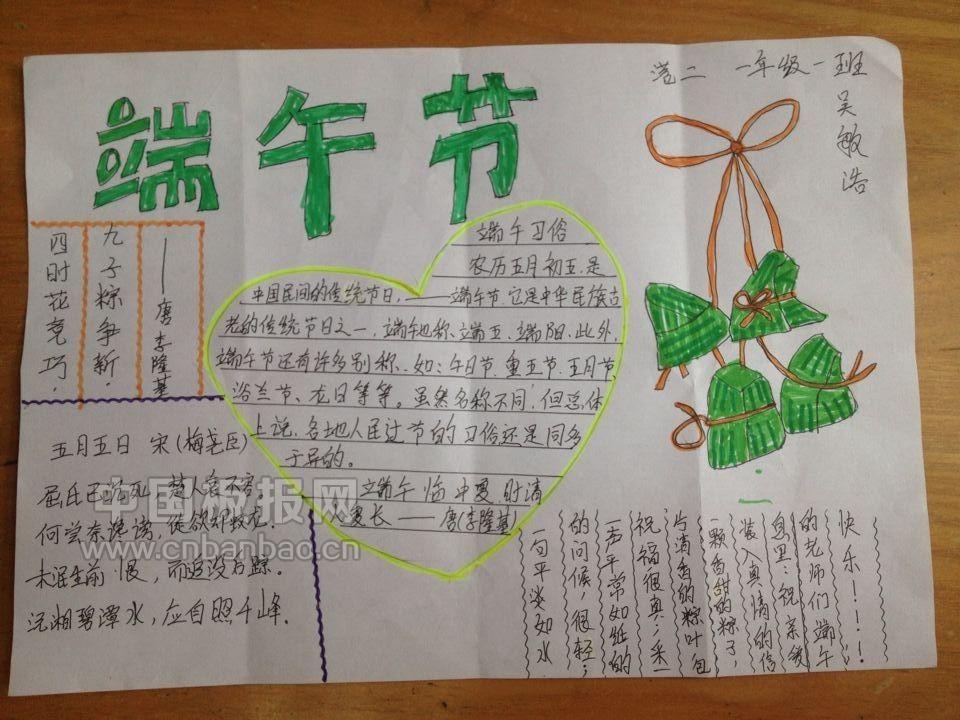 端午节
营二 一年级一班
吴敏浩
四时花竞巧.
九子粽争新.
——唐李隆基
端午习俗
农历五月初五,是
中国民间的传统节日,——端午节,它是中华民族古
老的传统节日之一,端午也称端五、端阳.此外,
端午节还有许多别称、如:午日节、重五节、五月节
浴兰节、龙日等等。虽然名称不同,但总体
上说,各地人民过节的习俗还是同多
于异的。
立端午临中夏,时清
人复长——唐(李隆基)
五月五日 宋(梅尧臣)
屈氏已沉死,楚人哀不容。
何尝奈谗谤,徒欲却蛟龙.
未泯生前恨,而追没后踪。
沅湘碧潭水,应自照千峰.
一句平淡如水
的问候,很轻;
一声平常如纸的
祝福很真;采
片清香的粽叶包
颗香甜的粽子,
装入真情的信
息里:祝亲爱
的老师们端午
快乐!!!!
中国板报网
www.cnbanbao.cn